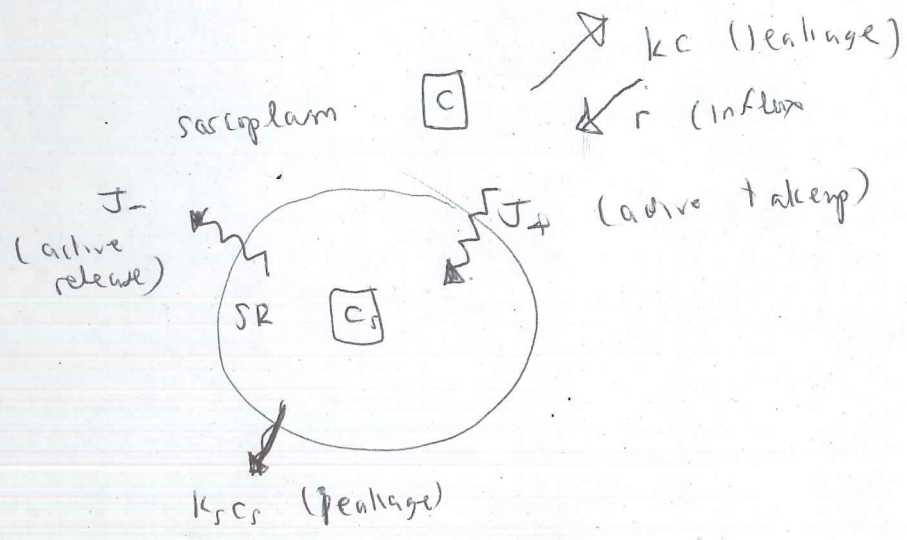 kc (leakage)
sarcoplasm
C
r (influx
J-
(active
release)
J+ (active takeup)
SR
Cs
kscs (leakage)